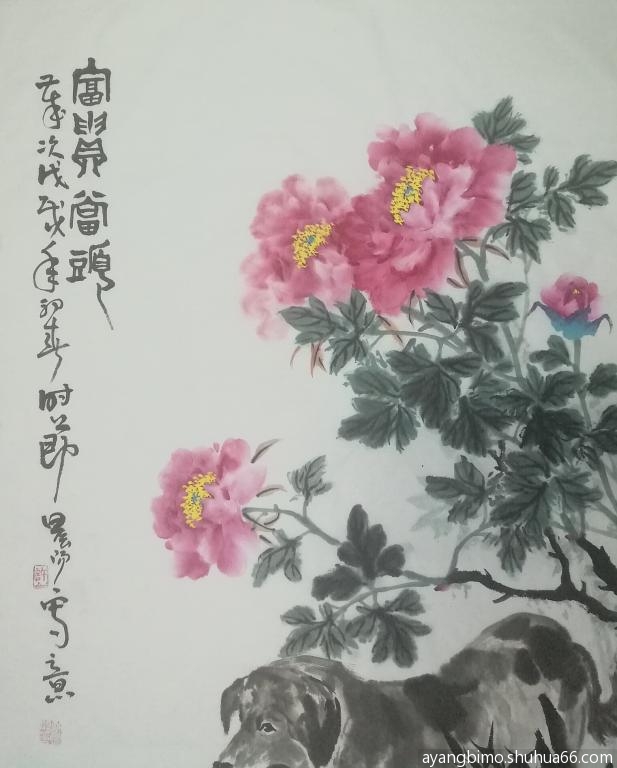 富貴當頭
歲次戊戌年初春时節晨阳写意
許
ayangbimo.shuhua66.com